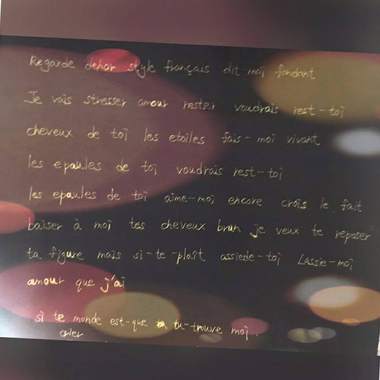 Regarde dehor style français dit moi fondant
Je vais stresser amour rester voudrais rest-toi
cheveux de toi les etoiles fais-moi vivant
les epaules de toi voudrais rest-toi
les epaules de toi aime-moi encore crois le fait
baiser à moi tes cheveux brun je veux te reposer
ta figure mais si-te-plaît assiede-toi LAsse-moi
amour que j'ai
si le monde est-que tu-trouve moi.